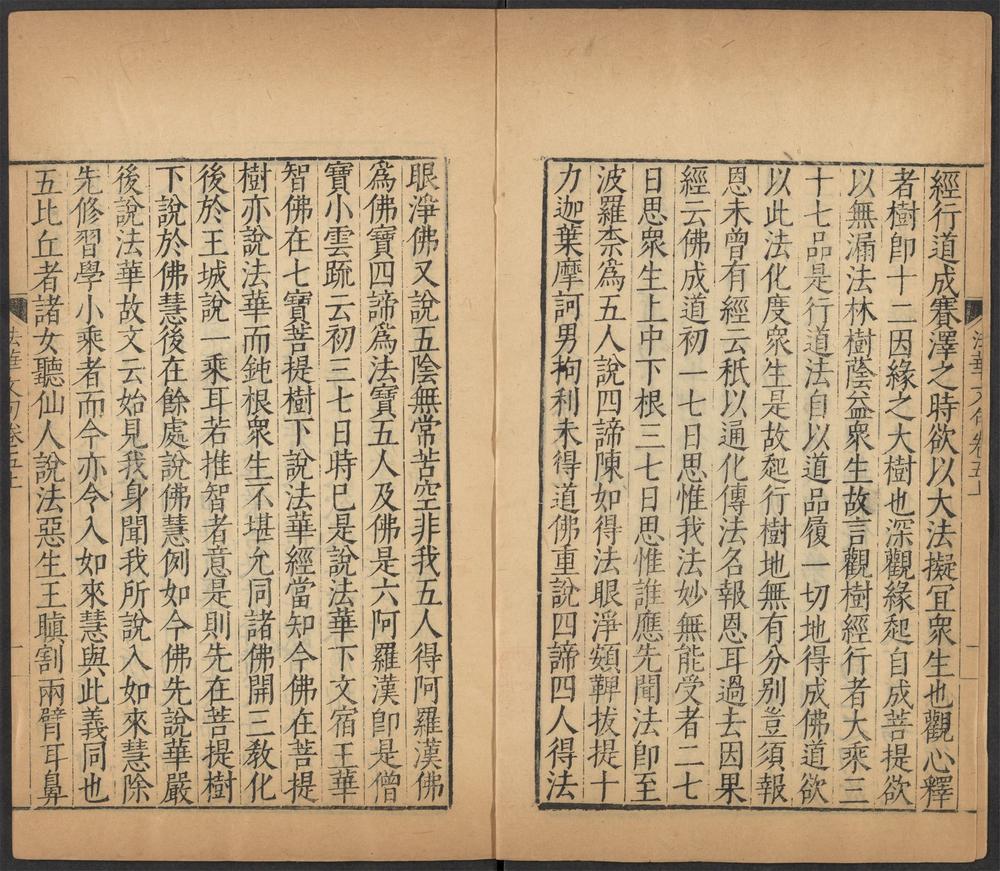 經行道成賽澤之時欲以大法擬宜衆生也觀心釋
者樹卽十二因緣之大樹也深觀緣起自成菩提欲
以無漏法林樹蔭益衆生故言觀樹經行者大乘三
十七品是行道法自以道品履一切地得成佛道欲
以此法化度衆生是故起行樹地無有分別豈須報
恩未曾有經云秖以通化傳法名報恩耳過去因果
經云佛成道初一七日思惟我法妙無能受者二七
日思衆生上中下根三七日思惟誰應先聞法卽至
波羅柰爲五人說四諦陳如得法眼淨頞鞞拔提十
力迦葉摩訶男拘利未得道佛重說四諦四人得法
眼淨佛又說五陰無常苦空非我五人得阿羅漢佛
爲佛寶四諦爲法寶五人及佛是六阿羅漢卽是僧
寶小雲疏云初三七日時已是說法華下文宿王華
智佛在七寶菩提樹下說法華經當知今佛在菩提
樹亦說法華而鈍根衆生不堪允同諸佛開三敎化
後於王城說一乘耳若推智者意是則先在菩提樹
下說於佛慧後在餘處說佛慧例如今佛先說華嚴
後說法華故文云始見我身聞我所說入如來慧除
先修習學小乘者而今亦令入如來慧與此義同也
五比丘者諸女聽仙人說法惡生王瞋割兩臂耳鼻
法華文句卷五上